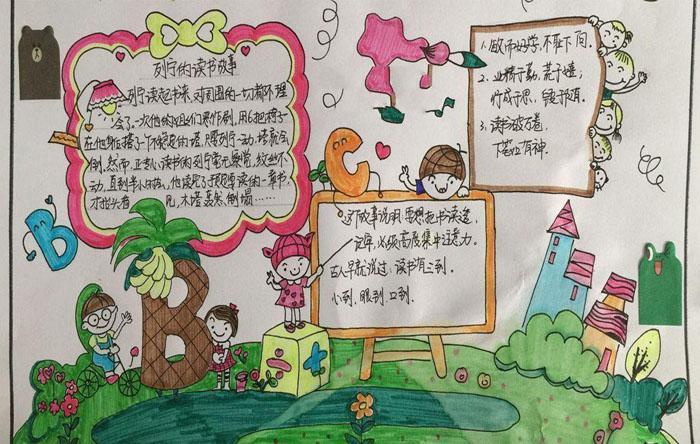 列宁的读书故事
列宁读起书来,对周围的一切都不理
会了。一次他的姐妹们恶作剧,用6把椅子
在他身后搭了一个不稳定的塔,只要列宁一动,塔就会
倒。然而,正专心读书的列宁毫无察觉,纹丝不
动,直到半小时后,他读完了预定要读的一章书,
才抬头看 见,木塔轰然倒塌……
1、敏而好学,不耻下问。
2、业精于勤,荒于嬉;
行成于思,毁于随。
3、读书破万卷,
下笔如有神。
C
B
B
这个故事说明:要想把书读透,
记牢,必须高度集中注意力。
古人早就说过:读书有三到。
心到、眼到、口到。
÷
+